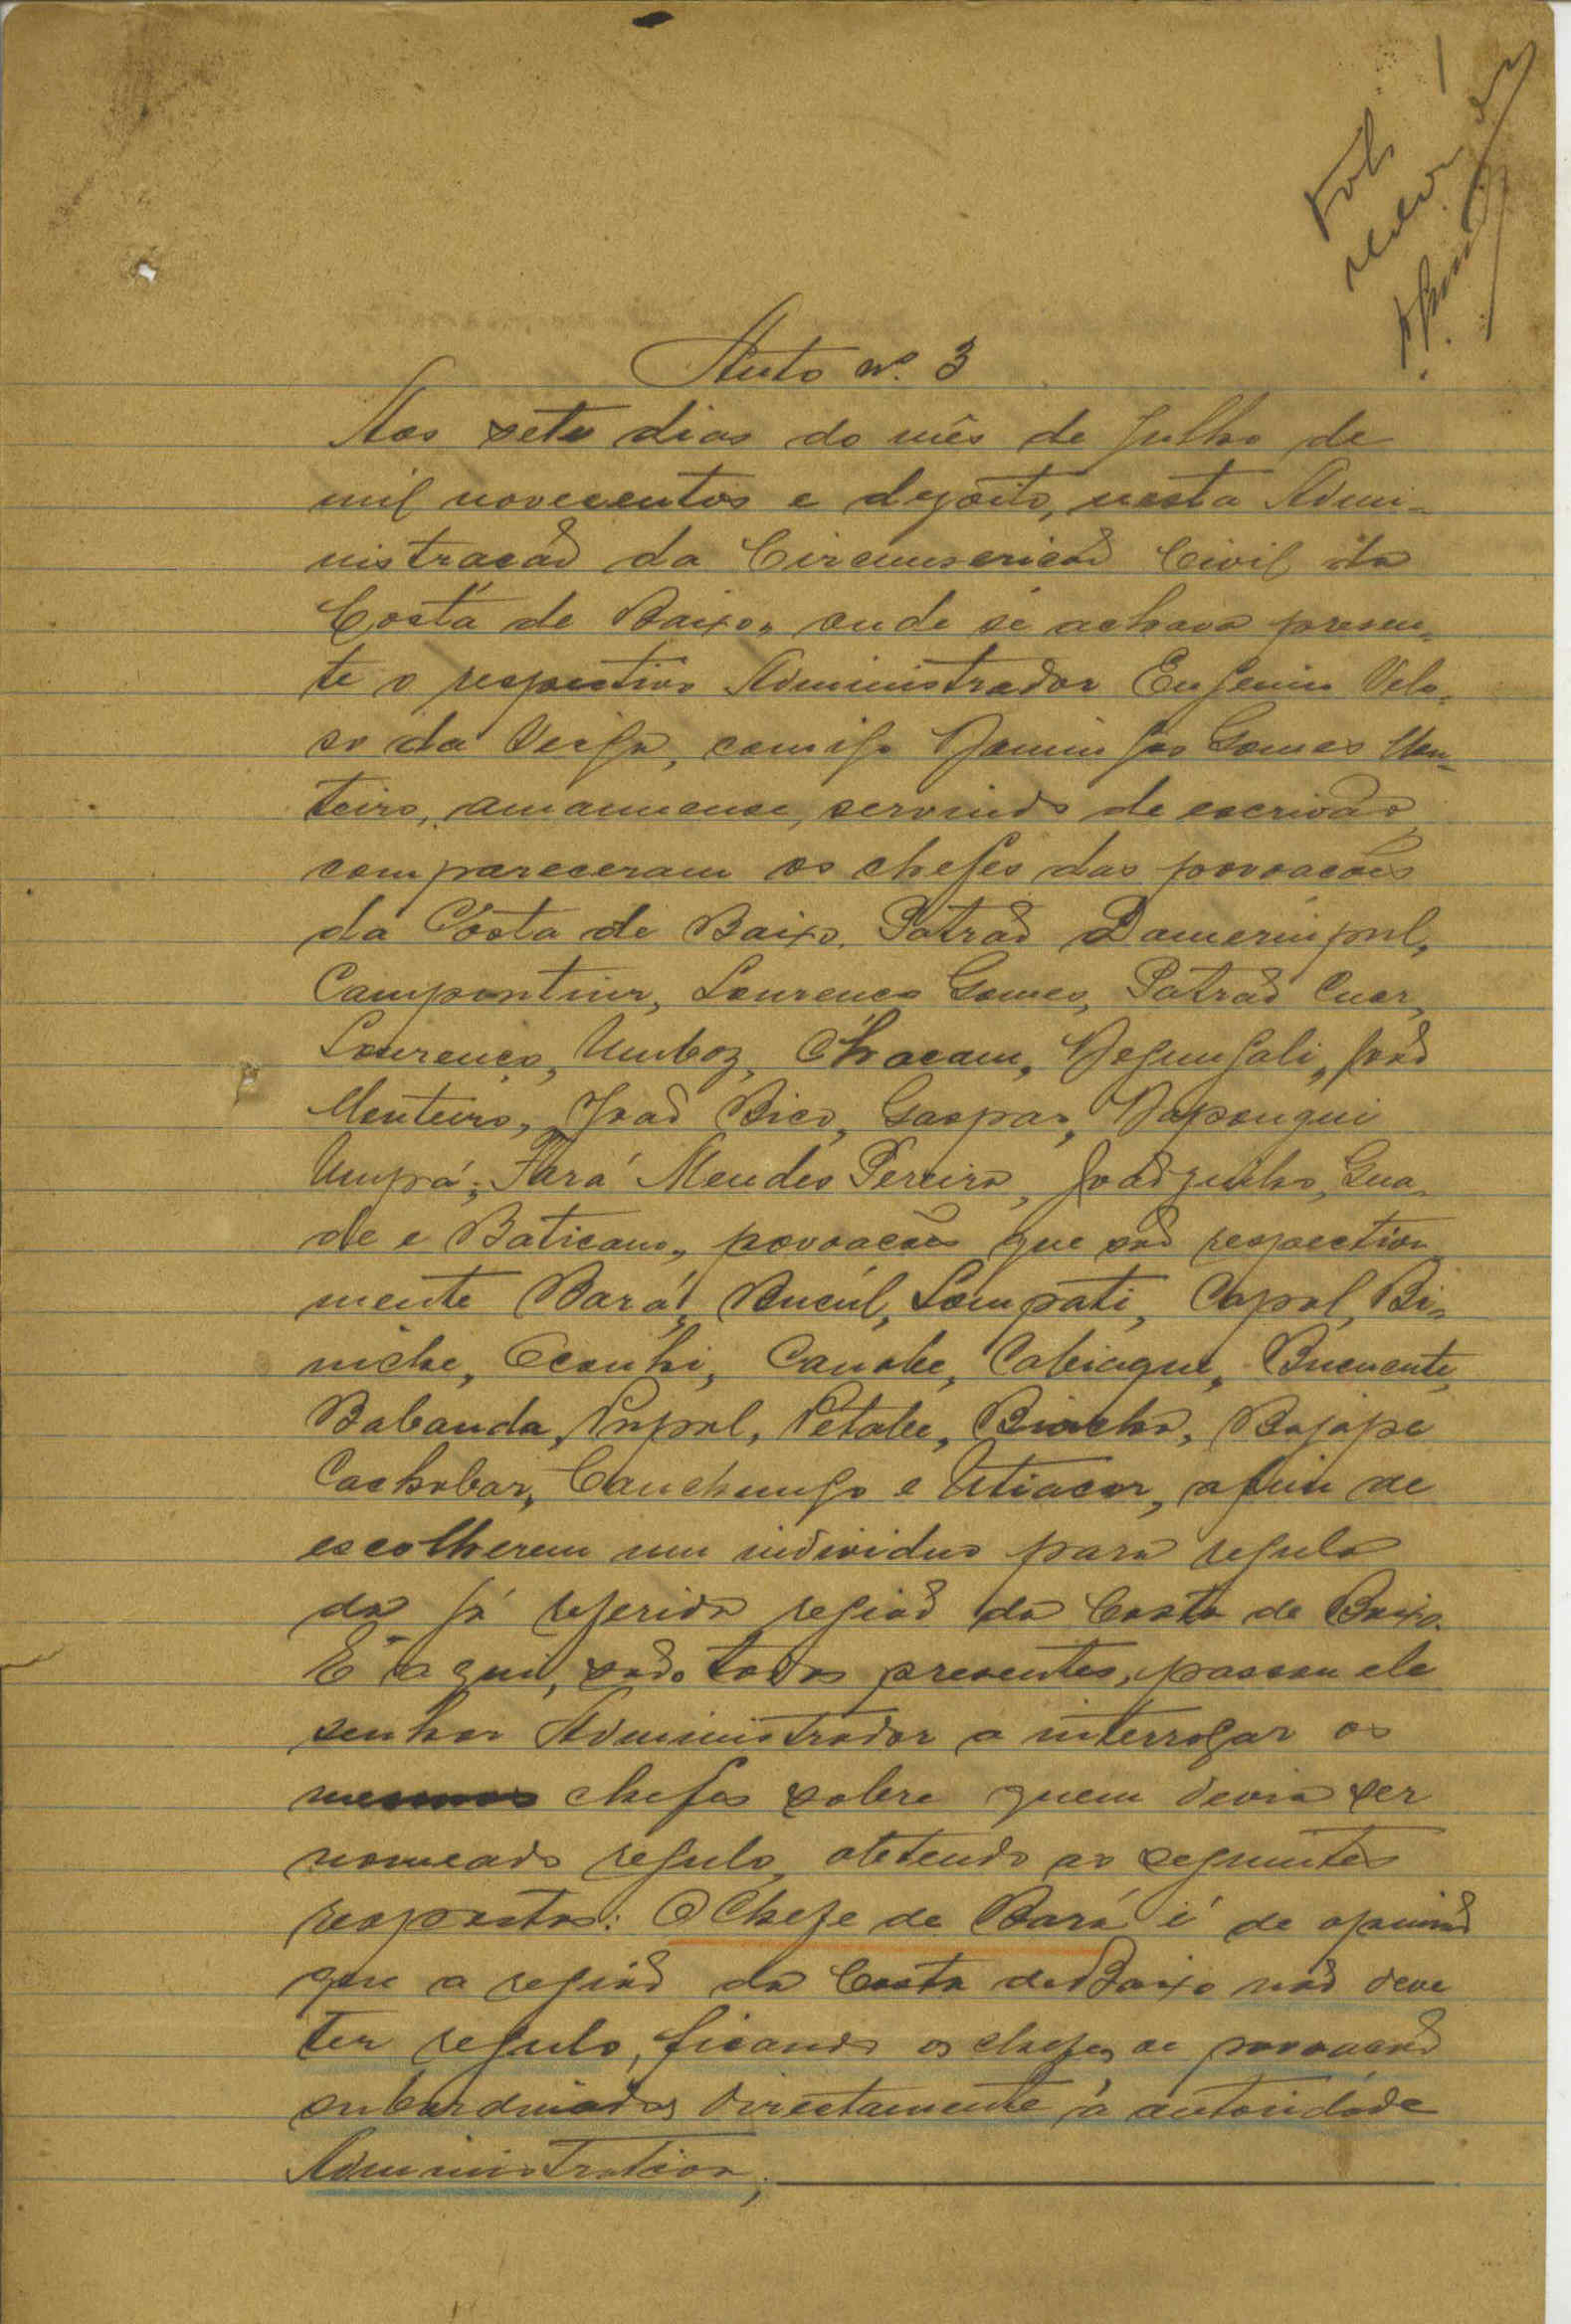 1
Auto nº. 3
Aos sete dias do mês de Julho de
mil novecentos e dezoito, nesta Admi-
nistração da Circunscrição Civil da
Costa de Baixo, onde se achava presen-
te o respectivo Administrador Eugenio Velo-
so da Veiga, comigo Domingos Gomes Mon-
teiro, amanuense, servindo de escrivão,
compareceram os chefes das povoações
da Costa de Baixo, Patrão
Lourenço Gomes, Patrão
Lourenço, Umboz, João
Monteiro, João Bico, Gaspar,
Umpá, Fará Mendes Pereira, Joãozinho, Gua-
de e Baticam, povoações que são respectiva
mente Bará, Bucúl, Lompati, Capol, Bi-
niche, Canobe, Cabiaque, Bucucute,
Babanda, Petabe, Bajope
Cachobar, Canchungo e Utiacor, afim de
escolherem um individuo para regulo
da já referida região da Costa de Baixo.
E aqui, todos presentes, passou ele
senhor Administrador a interrogar os
mesmos chefes sobre quem devia ser
nomeado regulo, obtendo as seguintes
respostas: O Chefe de Bará é de opinião
que a região da Costa de Baixo não deve
ter regulo, ficando os chefes de povoação
subordinados directamente á autoridade
Administrativa;